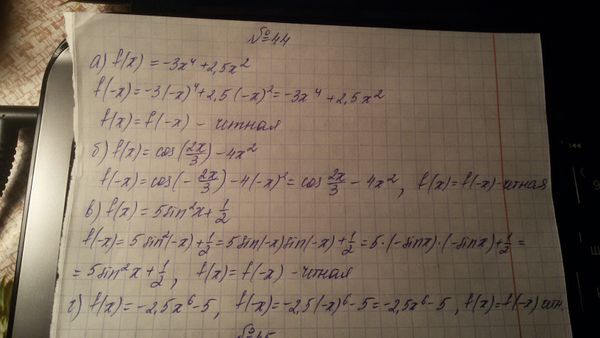 №44
а) f(x) = -3x⁴ + 2,5x²
f(-x) = -3(-x)⁴ + 2,5(-x)² = -3x⁴ + 2,5x²
f(x) = f(-x) - чётная
б) f(x) = cos(2x/3) - 4x²
f(-x) = cos(-2x/3) - 4(-x)² = cos 2x/3 - 4x², f(x) = f(-x) - чётная
в) f(x) = 5sin²x + 1/2
f(-x) = 5sin²(-x) + 1/2 = 5sin(-x)sin(-x) + 1/2 = 5·(-sinx)·(-sinx) + 1/2 =
= 5sin²x + 1/2, f(x) = f(-x) - чётная
г) f(x) = -2,5x⁶ - 5, f(-x) = -2,5(-x)⁶ - 5 = -2,5x⁶ - 5, f(x) = f(-x) чётн.
№45